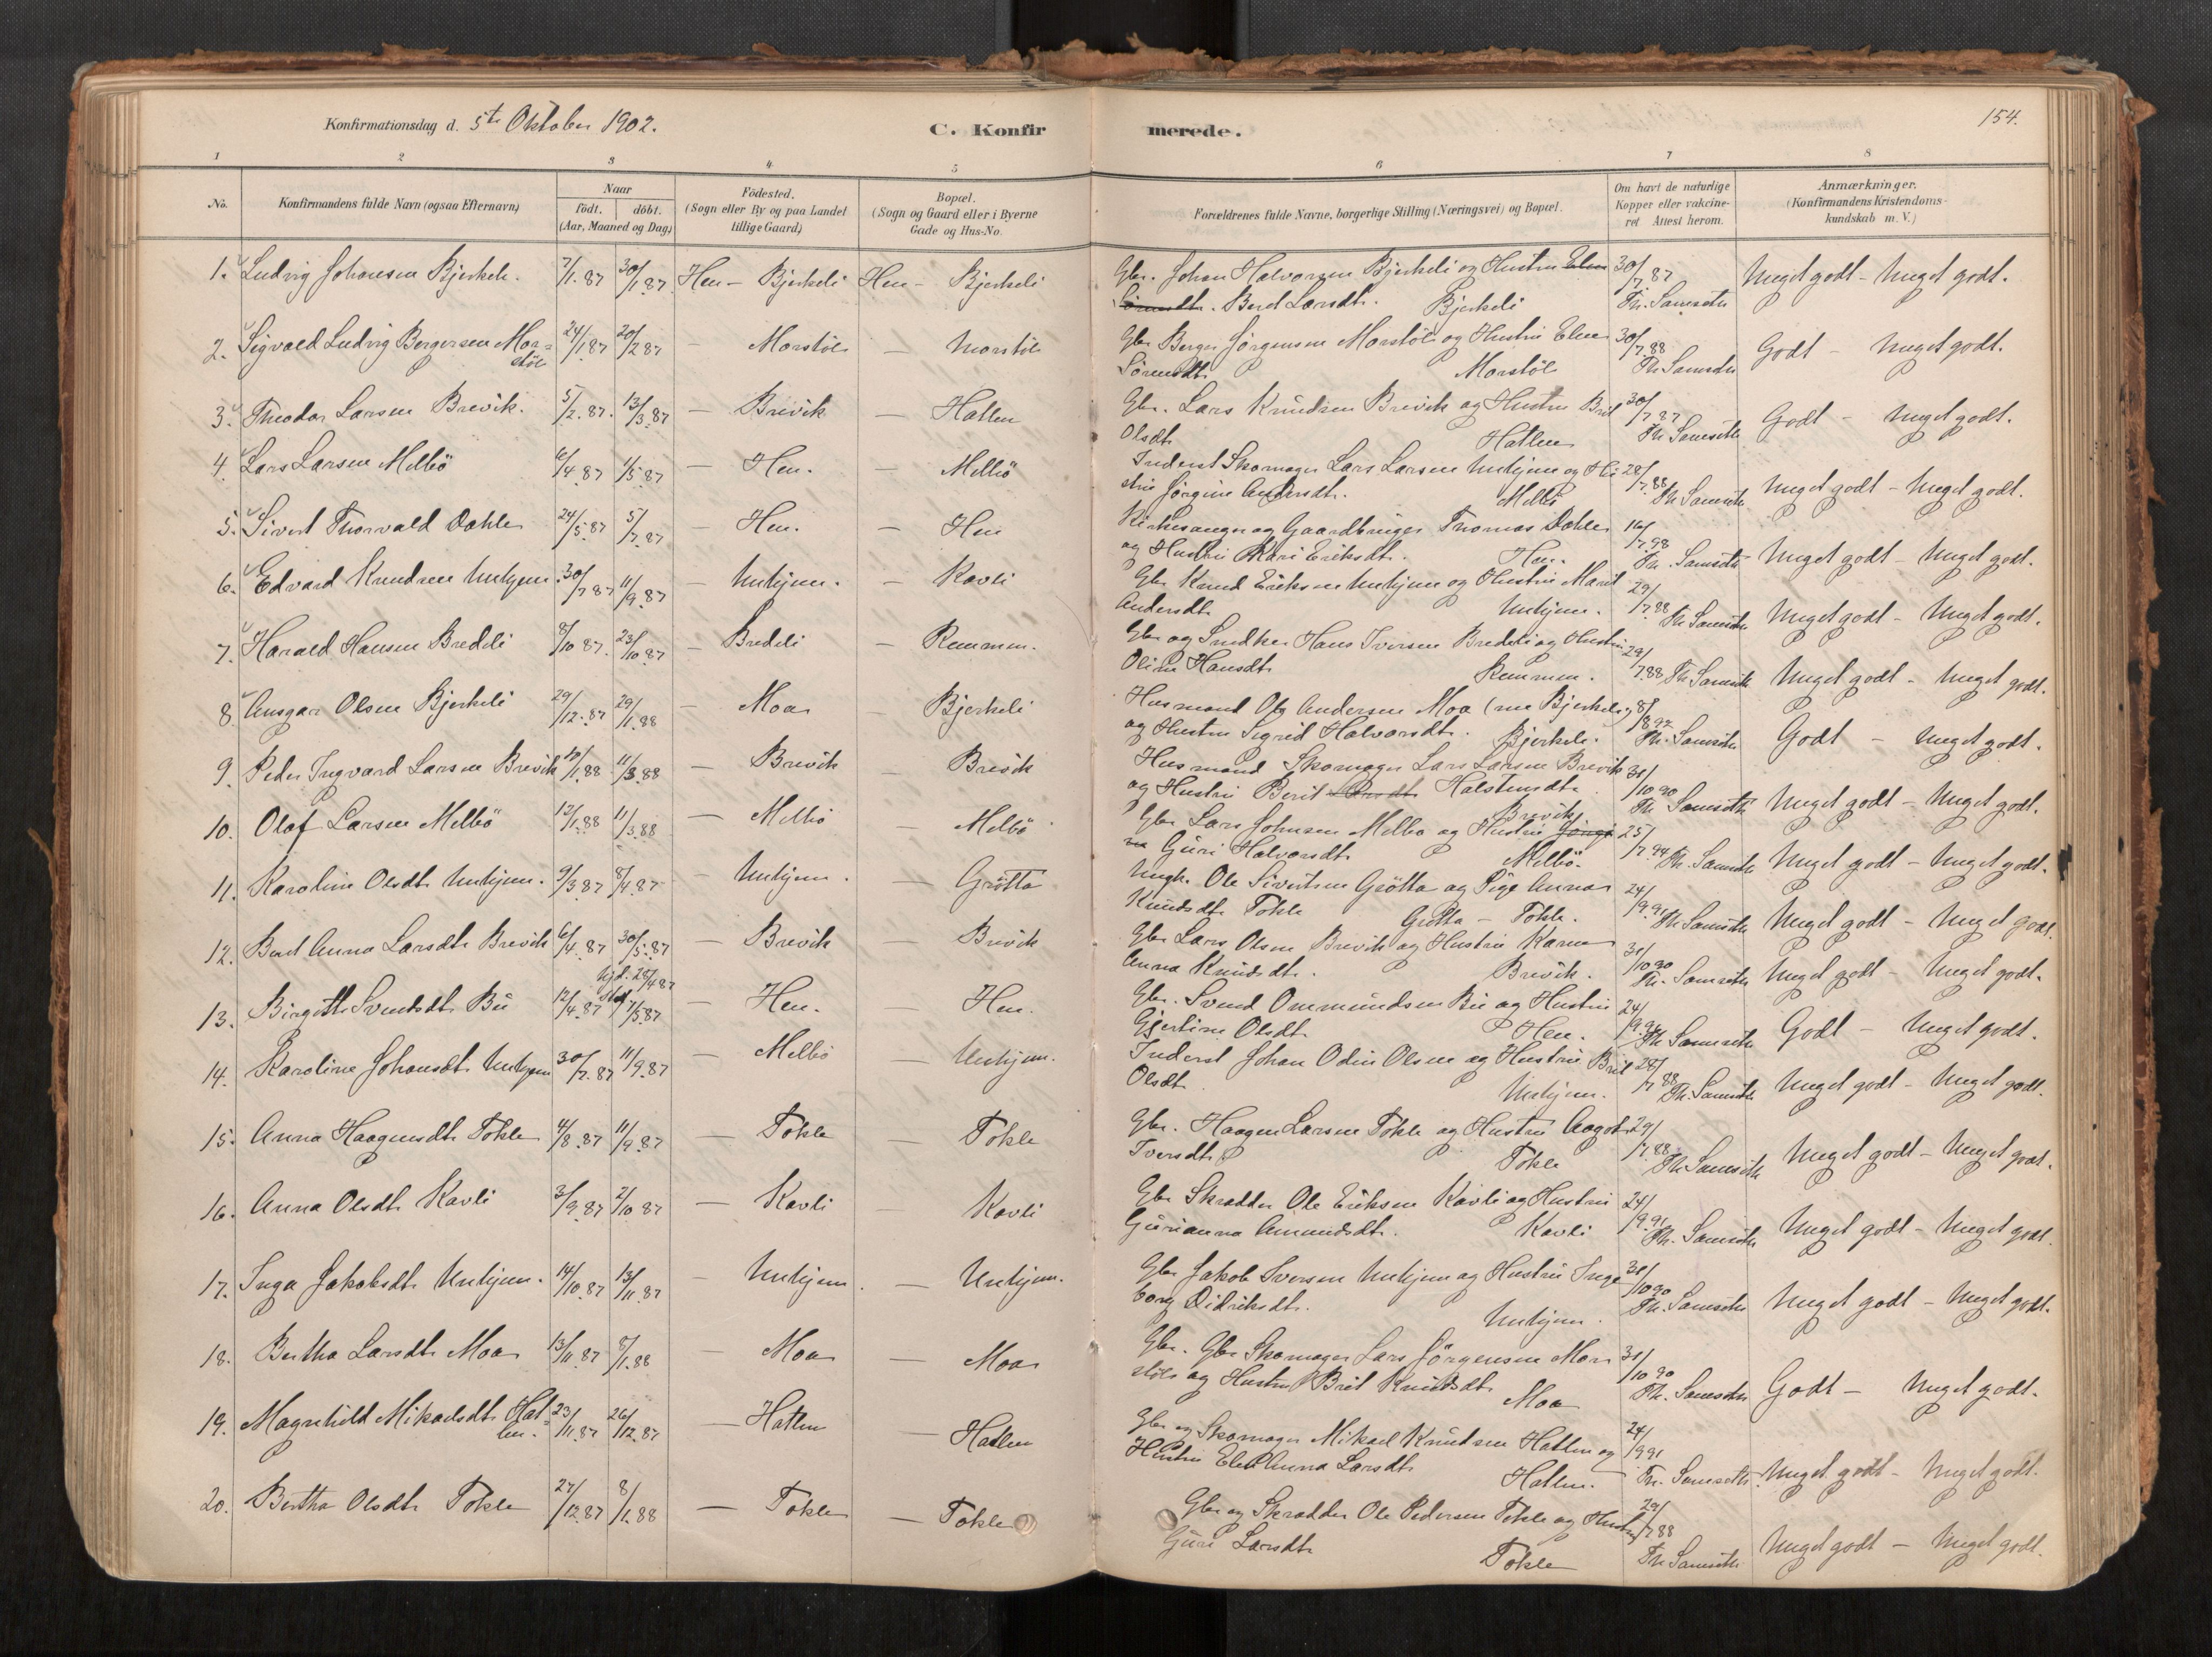 Konfirmationsdag d. 5te Oktober 1902.
C. Konfirmerede.
154.
1 2 3 4 5 6 7 8
No.
Konfirmandens fulde Navn (ogsaa Efternavn)
Naar
født. døbt.
(Aar, Maaned og Dag)
Fødested.
(Sogn eller By og paa Landet
tillige Gaard)
Bopæl.
(Sogn og Gaard eller i Byerne
Gade og Hus-No.
Forældrenes fulde Navne, borgerlige Stilling (Næringsvei) og Bopæl.
Om havt de naturlige
Kopper eller vakcine-
ret Attest herom.
Anmærkninger.
(Konfirmandens Kristendoms-
kundskab m. V.)
1. Ludvig Johansen Bjerkeli. 7/1.87 30/1.87 Hen - Bjerkeli Hen - Bjerkeli
Gbr. Johan Halvorsen Bjerkeli og Hustru Elen 30/7.87 Meget godt - Meget godt.
Sørensdtr. Berit Larsdtr. Bjerkeli Th. Samseth
2. Sigvald Ludvig Bergersen Mor= 24/1.87 20/2.87 — Morstöl — Morstöl
stöl
Gbr Berger Jörgensen Morstöl og Hustru Elen 30/7.88 Godt - Meget godt.
Sörensdtr. Morstöl Th Samseth
3. Theodor Larsen Brevik. 5/2.87. 13/3.87 — Brevik — Hatlen
Gbr. Lars Knudsen Brevik og Hustru Brit 30/7.87 Godt - Meget godt.
Olsdtr Hatlen Th Samseth
4. Lars Larsen Melbö 6/4.87 1/5.87 — Hen. — Melbö
Inderst Skomager Lars Larsen Unhjem og Hu- 28/7.88 Meget godt - Meget godt.
stru Jörgine Andersdtr. Melbö Th Samseth
5. Sivert Thorvald Dahle 24/5.87 5/7.87 — Hen. — Hen
Kirkesanger og Gaardbruger Thomas Dahle 16/7.98 Meget godt - Meget godt.
og Hustru Kari Eriksdtr. Hen. Th. Samseth
6. Edvard Knudsen Unhjem 30/7.87 11/9.87 Unhjem. — Kavli
Gbr Knud Eriksen Unhjem og Hustru Marit 29/7.88 Meget godt - Meget godt.
Andersdtr Unhjem. Th Samseth
7. Harald Hansen Bredeli 8/10.87. 23/10.87 — Bredeli — Remmem.
Gbr og Snedker Hans Iversen Bredeli og Hustru 29/7.88 Meget godt - Meget godt.
Oline Hansdtr Remmem. Th Samseth
8. Ansgar Olsen Bjerkeli 29/12.87 29/1.88 — Moa — Bjerkeli
Husmand Ole Andersen Moa (nu Bjerkeli) 8/8.92 Godt - Meget godt.
og Hustru Sigrid Halvorsdtr. Bjerkeli. Th. Samseth
9. Peder Ingvard Larsen Brevik 10/1.88 11/3.88 — Brevik — Brevik
Husmand Skomager Lars Larsen Brevik 31/10.90 Meget godt - Meget godt.
og Hustru Berit Halstensdtr. Brevik. Th Samseth
10. Olaf Larsen Melbö 12/1.88 11/3.88 — Melbö — Melbö
Gbr Lars Johnsen Melbö og Hustru Jörgi 25/7.94 Meget godt - Meget godt.
ne Guri Halvorsdtr Melbö. Th. Samseth
11. Karoline Olsdtr Unhjem. 9/3.87 8/4.87 — Unhjem. — Grötta
Ungk. Ole Sivertsen Grötta og Pige Anna 24/9.91 Meget godt - Meget godt.
Knudsdtr Tokle Grötta - Tokle. Th Samseth
12. Berit Anna Larsdtr Brevik 6/4.87 30/5.87 — Brevik — Brevik
Gbr Lars Olsen Brevik og Hustru Karen 31/10.90 Meget godt - Meget godt.
Anna Knudsdtr. Brevik. Th. Samseth
13. Birgitte Svendsdtr Bü 12/4.87 hjd. 28/4.87 stad. 1/5.87 — Hen. — Hen.
Gbr. Svend Ommundsen Bü og Hustru 24/9.91 Godt - Meget godt.
Gjertine Olsdtr Hen. Th Samseth
14. Karoline Johansdtr Unhjem 30/7.87 11/9.87 — Melbö — Unhjem.
Inderst Johan Odin Olsen og Hustru Brit 28/7.88 Meget godt - Meget godt.
Olsdtr Unhjem. Th. Samseth
15. Anna Haagensdtr Tokle 4/8.87 11/9.87 — Tokle — Tokle
Gbr. Haagen Larsen Tokle og Hustru Aagot 29/7.88 Meget godt - Meget godt.
Iversdtr Tokle Th Samseth
16. Anna Olsdtr Kavli 3/9.87 2/10.87 — Kavli — Kavli
Gbr Skrædder Ole Eriksen Kavli og Hustru 24/9.91 Meget godt - Meget godt.
Gurianna Amundsdtr. Kavli Th. Samseth
17. Inga Jakobsdtr Unhjem. 14/10.87 13/11.87 — Unhjem. — Unhjem.
Gbr Jakob Iversen Unhjem og Hustru Inge 31/10.90 Meget godt - Meget godt.
borg Didriksdtr. Unhjem. Th. Samseth
18. Bertha Larsdtr Moa 13/11.87 8/1.88 — Moa — Moa
Gbr. Gbr Skomager Lars Jörgensen Mor 31/10.90 Godt - Meget godt.
stöl og Hustru Brit Knudsdtr Moa Th. Samseth
19. Magnhild Mikaelsdtr Hat= 23/11.87 26/12.87 — Hatlen — Hatlen
len.
Gbr og Skomager Mikael Knudsen Hatlen og 24/9.91 Meget godt - Meget godt.
Hustru Elen Anna Larsdtr Hatlen. Th. Samseth
20. Bertha Olsdtr Tokle 27/12.87 8/1.88 — Tokle — Tokle
Gbr og Skrædder Ole Pedersen Tokle og Hustru 29/7.88 Meget godt - Meget godt.
Guri Larsdtr Tokle Th Samseth